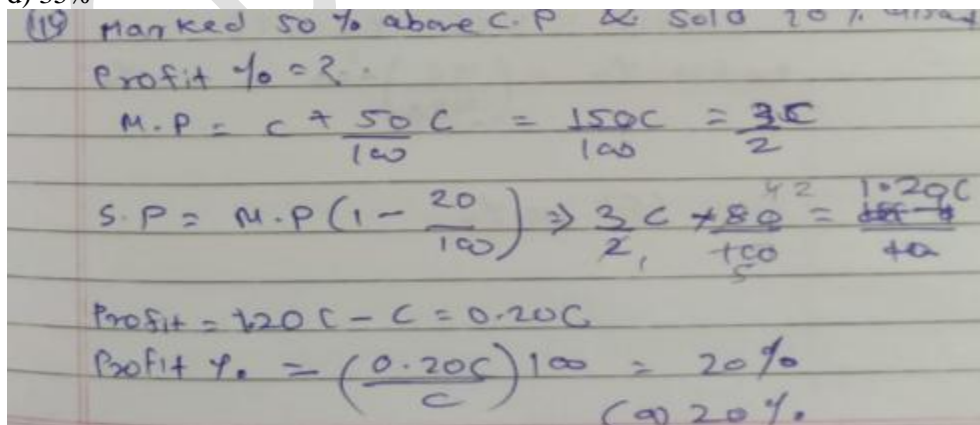 d) 35%
(19) Marked 50 % above C.P & Sold 20 %
Profit % = ?.
M.P = C + 50/100 C = 150C/100 = 3C/2
S.P = M.P (1 - 20/100) ⇒ 3/2 C × 80/100 = 1.20C
Profit = 1.20C - C = 0.20C
Profit %. = (0.20C/C) 100 = 20%
(a) 20%.